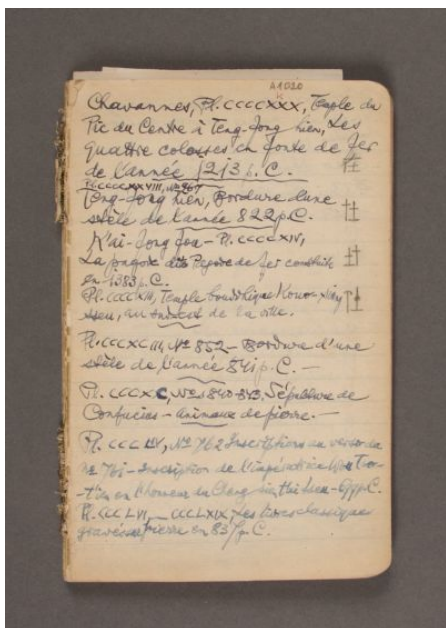 A1020
Chavannes, Pl. CCCCXXX, Temple du
Pic du Centre à Teng-Fong hien, Les
quattre colosses en fonte de fer
de l'année 1213 p.C.
Pl. CCCCXXVIII, No 967
Teng-Fong hien, Bordure d'une
stèle de l'année 822 p.C.
K'ai-Fong fou - Pl. CCCCXIV,
La pagode dite Pagode de fer construite
en 1383 p.C.
Pl. CCCCXIII, Temple bouddhique
de la ville.
Pl. CCCXCIII, No 852 - Bordure d'une
stèle de l'année 541 p.C. -
Pl. CCCXC, Nos 840-843, Sépulture de
Confucius - Animaux de pierre. -
No 762 Inscriptions au verso du
No 761 - Inscription de l'impératrice Wou Tso-
t'ien en l'honneur du p.C.
Pl. CCCLVI, CCCLXIX, Les livres classique
gravés en pierre en 837 p.C.